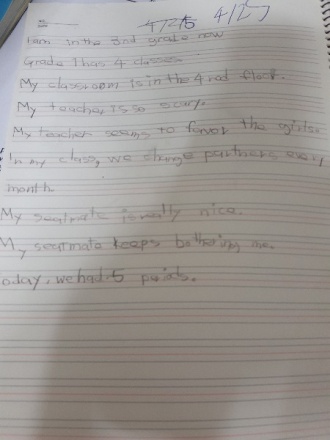 4/25 4/27
I am in the 3rd grade now
Grade 1 has 4 classes
My classroom is in the 4 floor.
My teacher is so scary.
My teacher seems to favor the girls.
In my class, we change partners every
month.
My seatmate is really nice.
My seatmate keeps bothering me.
oday, we had 5